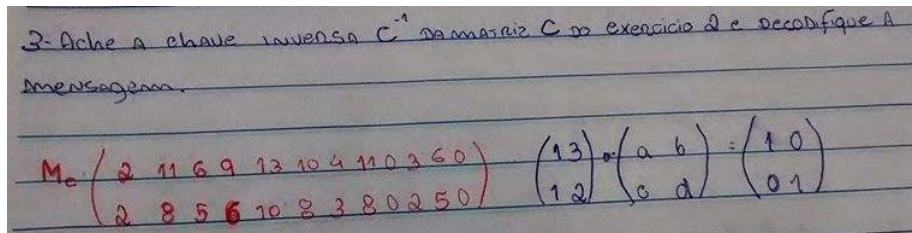 3- Ache A chave inversa C⁻¹ DA MATRIZ C DO exercício 2 e Decodifique A
mensagem.
Mc = ( 2 11 6 9 13 10 4 11 0 3 6 0 ) (1 3) • (a b) = (1 0)
( 2 8 5 6 10 8 3 8 0 2 5 0 ) (1 2) (c d) (0 1)